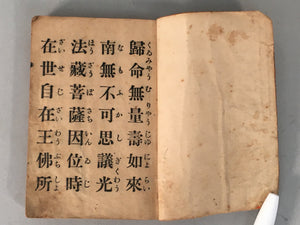 くゐ みやう む りやう じゆ によ らい
歸命無量壽如來
な も ふ か し ぎ くわう
南無不可思議光
ほう ざう ぼ さち いん ゐ じ
法藏菩薩因位時
ざい せ じ ざい わう ぶち しよ
在世自在王佛所